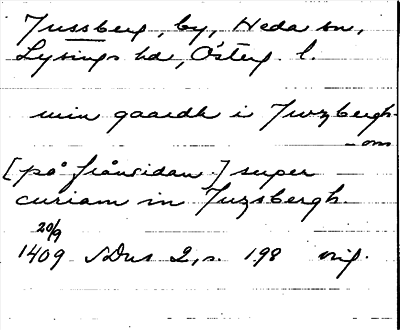 Jussberg, by, Heda sn,
Lysings hd, Österg. l.
min gaardh i Jwzbergh-
-om
[på frånsidan] super
curiam in Juzsbergh
20/9
1409 SDns 2, s. 198 orig.